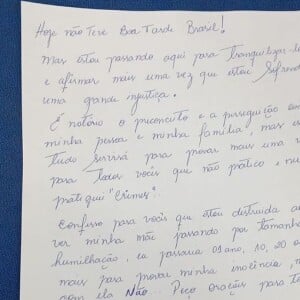 Hoje não Teve Boa Tarde Brasil!
Mas estou passando aqui para tranquilizar
e afirmar mais uma vez que estou sofrendo
uma grande injustiça.
É notório o preconceito e a perseguição
minha pessoa e minha família, mas
tudo servirá para provar mais uma
para todos vocês que não pratico,
pratiquei "Crimes".
Confesso para vocês que estou destruída
ver minha mãe passando por tamanha
humilhação, eu passaria 01 ano, 10, 20
mais para provar minha inocência,
com ela Não... Peço orações para